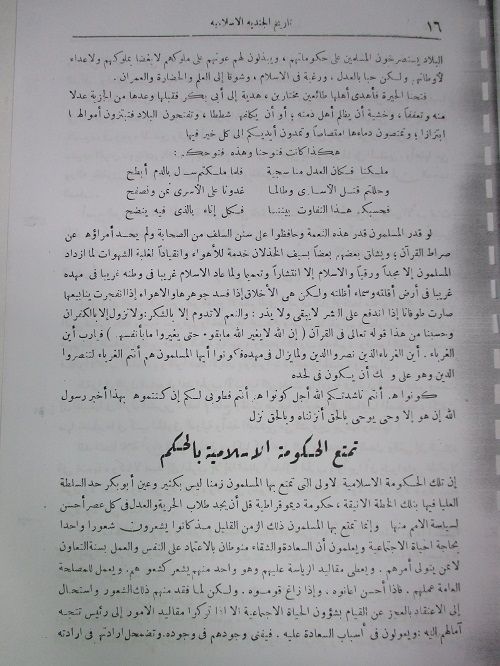 ١٦
تاريخ الجندية الاسلامية
البلاد يستصرخون المسلمين على حكوماتهم ، ويبذلون لهم عونهم على ملوكهم لابغضا بملوكهم ولاعداء
لأوطانهم ولكن حبا بالعدل ، ورغبة فى الاسلام ، وشوقا إلى العلم والحضارة والعمران .
فتحنا الحيرة فأهدى أهلها طائعين مختارين ، هدية إلى أبى بكر فقبلها وعدها من الجزية عدلا
منه وتعففا ، وخشية أن يظلم أهل ذمته ؛ أو أن يكلفهم شططا ، وتفتحون البلاد فتبتزون أموالها
ابتزازا ؛ وتمتصون دماءها امتصاصا وتمدون أيديكم الى كل خير فيها
هكذا كانت فتوحنا وهذه فتوحكم :
ملكنا فكان العدل منا سجية فلما ملكتم سال بالدم أبطح
وحللتم قتل الاسارى وطالما غدونا على الاسرى نمن ونصفح
فحسبكم هذا التفاوت بيننا فكل إناء بالذى فيه ينضح
لو قدر المسلمون قدر هذه النعمة وحافظوا على سنن السلف من الصحابة ولم يحد أمراؤهم عن
صراط القرآن ؛ ويشاق بعضهم بعضا بسيف الخذلان خدمة للأهواء وانقيادا لغلبة الشهوات لما ازداد
المسلمون إلا مجدا ورقيا والاسلام إلا انتشارا وتعميما ولما عاد الاسلام غريبا فى وطنه غريبا فى مهده
غريبا فى أرض أقلته وسماء أظلته ولكن هى الأخلاق إذا فسد جوهرها والاهواء إذا انفجرت ينابيعها
صارت طوفانا إذا اندفع على البشر لايبقى ولا يذر : والنعم لاتدوم إلا بالشكر : ولا تزول إلا بالكفران
وحسبنا من هذا قوله تعالى فى القرآن ( إن الله لايغير الله مابقوم حتى يغيروا مابأنفسهم ) فيارب أين
الغرباء . أين الغرباء الذين نصروا الدين ولما يزال فى مهده فكونوا أيها المسلمون هم أنتم الغرباء لتنصروا
الدين وهو على وشك أن يسكون فى لحده
كونوا هم أنتم ناشدتكم الله أجل كونوا هم أنتم فطوبى لكم إن كنتموه بهذا أخبر رسول
الله إن هو إلا وحى يوحى بالحق أنزلناه وبالحق نزل
تمتع الحكومة الاسلامية بالحكم
إن تلك الحكومة الاسلامية الاولى التى تمتع بها المسلمون زمنا ليس بكثير وعين أبوبكر حد السلطة
العليا فيها بتلك الخطة الانيقة ، حكومة ديموقراطية قل أن يجد طلاب الحرية والعدل فى كل عصر أحسن
لسياسة الامم منها وإنما تمتع بها المسلمون ذلك الزمن القليل مذ كانوا يشعرون شعورا واحدا
بحاجة الحياة الاجتماعية ويعلمون أن السعادة والشقاء منوطان بالاعتماد على النفس والعمل بسنة التعاون
لا بمن يتولى أمرهم . ويعطى مقاليد الرياسة عليهم وهو واحد منهم يشعر كشعورهم . ويعمل للمصلحة
العامة عملهم . فاذا أحسن اعانوه . وإذا زاغ قوموه . ولكن لما فقد منهم ذلك الشعور واستحال
إلى الاعتقاد بالعجز عن القيام بشؤون الحياة الاجتماعية الا اذا تركوا مقاليد الامور إلى رئيس تتجه
آمالهم اليه . ويعولون فى أسباب السعادة عليه . فيفنى وجودهم فى وجوده . وتضمحل ارادتهم فى ارادته